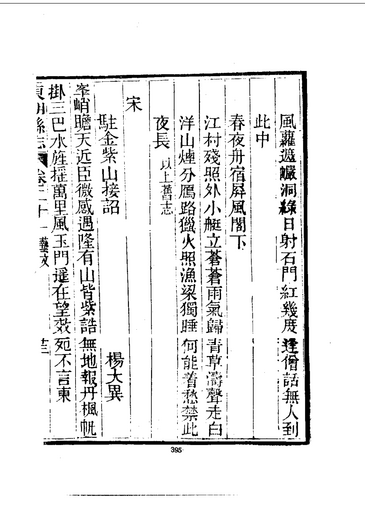 風蘿邃巖洞綠日射石門紅幾度逢僧話無人到
此中
春夜舟宿屏風閣下
江村殘照外小艇立蒼蒼雨氣歸青草濤聲走白
洋山煙分鴈路獵火照漁梁獨睡何能着愁禁此
夜長以上舊志
宋
駐金紫山接詔 楊大異
峯峭瞻天近臣微感遇隆有山皆紫誥無地報丹楓帆
掛三巴水旌搖萬里風玉門遥在望效宛不言東
縣志 卷三十一 藝文
395